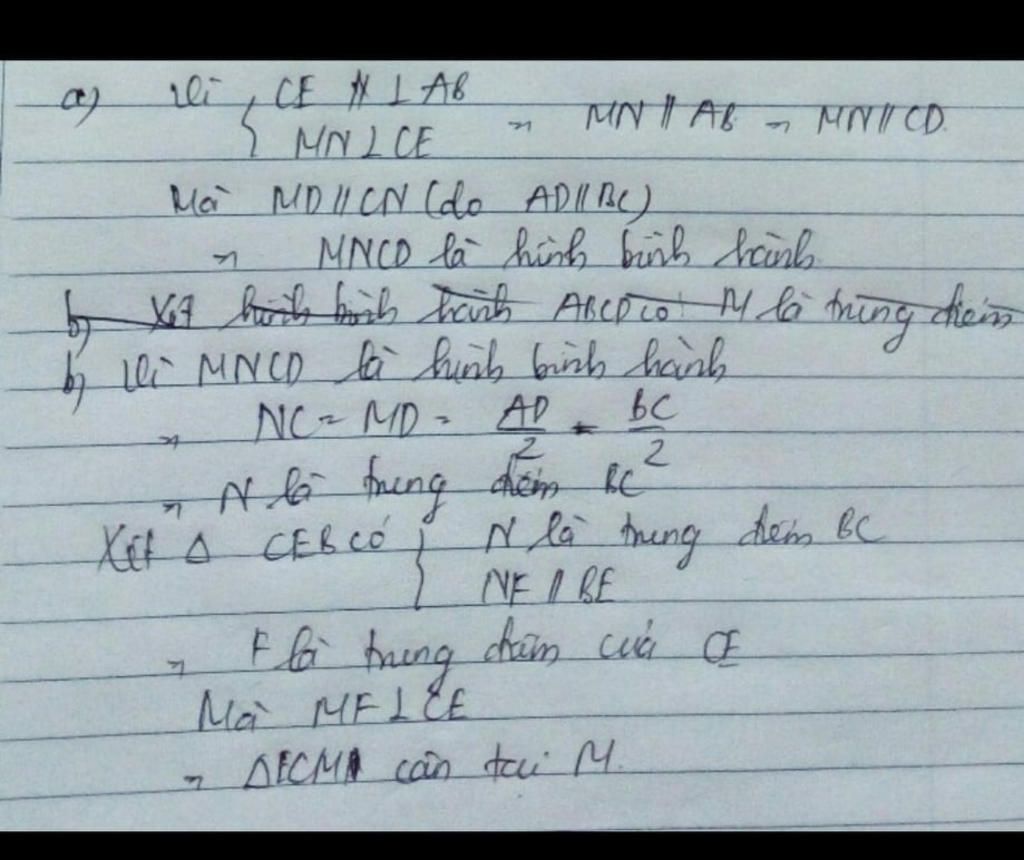 a) Vì { CE ⊥ AB
MN ⊥ CE → MN // AB → MN // CD.
Mà MD // CN (do AD // BC)
→ MNCD là hình bình hành
b) Xét hình bình hành ABCD có M là trung điểm
b) Vì MNCD là hình bình hành
→ NC = MD = AD/2 = BC/2
→ N là trung điểm BC
Xét Δ CEB có { N là trung điểm BC
NF // BE
→ F là trung điểm của CE
Mà MF ⊥ CE
→ ΔECM cân tại M.